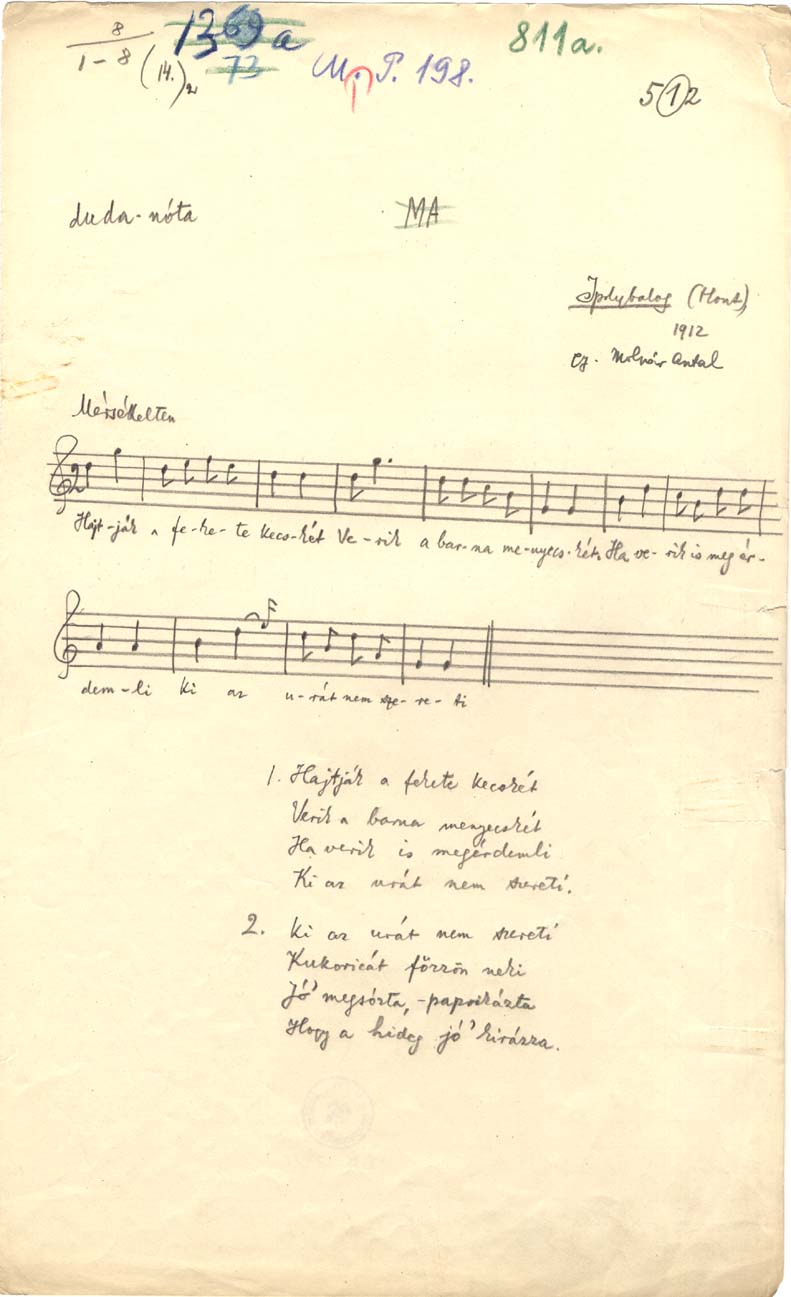 8
1-8 (14.)2
1369a
73
M. P. 198.
811a.
512
duda-nóta
MA
Ipolybalog (Hont)
1912
Gy. Molnár Antal
Mérsékelten
2
Hajt-ják a fe-ke-te kecs-két Ve-rik a bar-na me-nyecs-két. Ha ve-rik is meg ér-
dem-li ki az u-rát nem sze-re-ti
1. Hajtják a fekete kecskét
Verik a barna menyecskét
Ha verik is megérdemli
Ki az urát nem szereti.
2. Ki az urát nem szereti
Kukoricát főzzön neki
Jó' megsózta, -paprikázta
Hogy a hideg jó' kirázza.